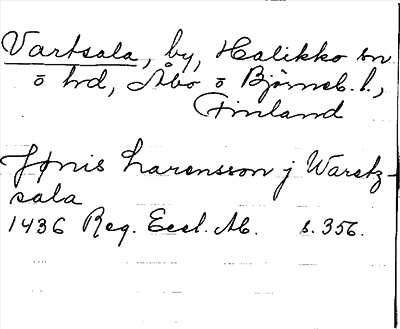 Vartsala, by, Halikko sn
o hd, Åbo o Björneb. l.,
Finland
Jønis Larensson j Waretz-
sala
1436 Reg. Eccl. Ab. s. 356.